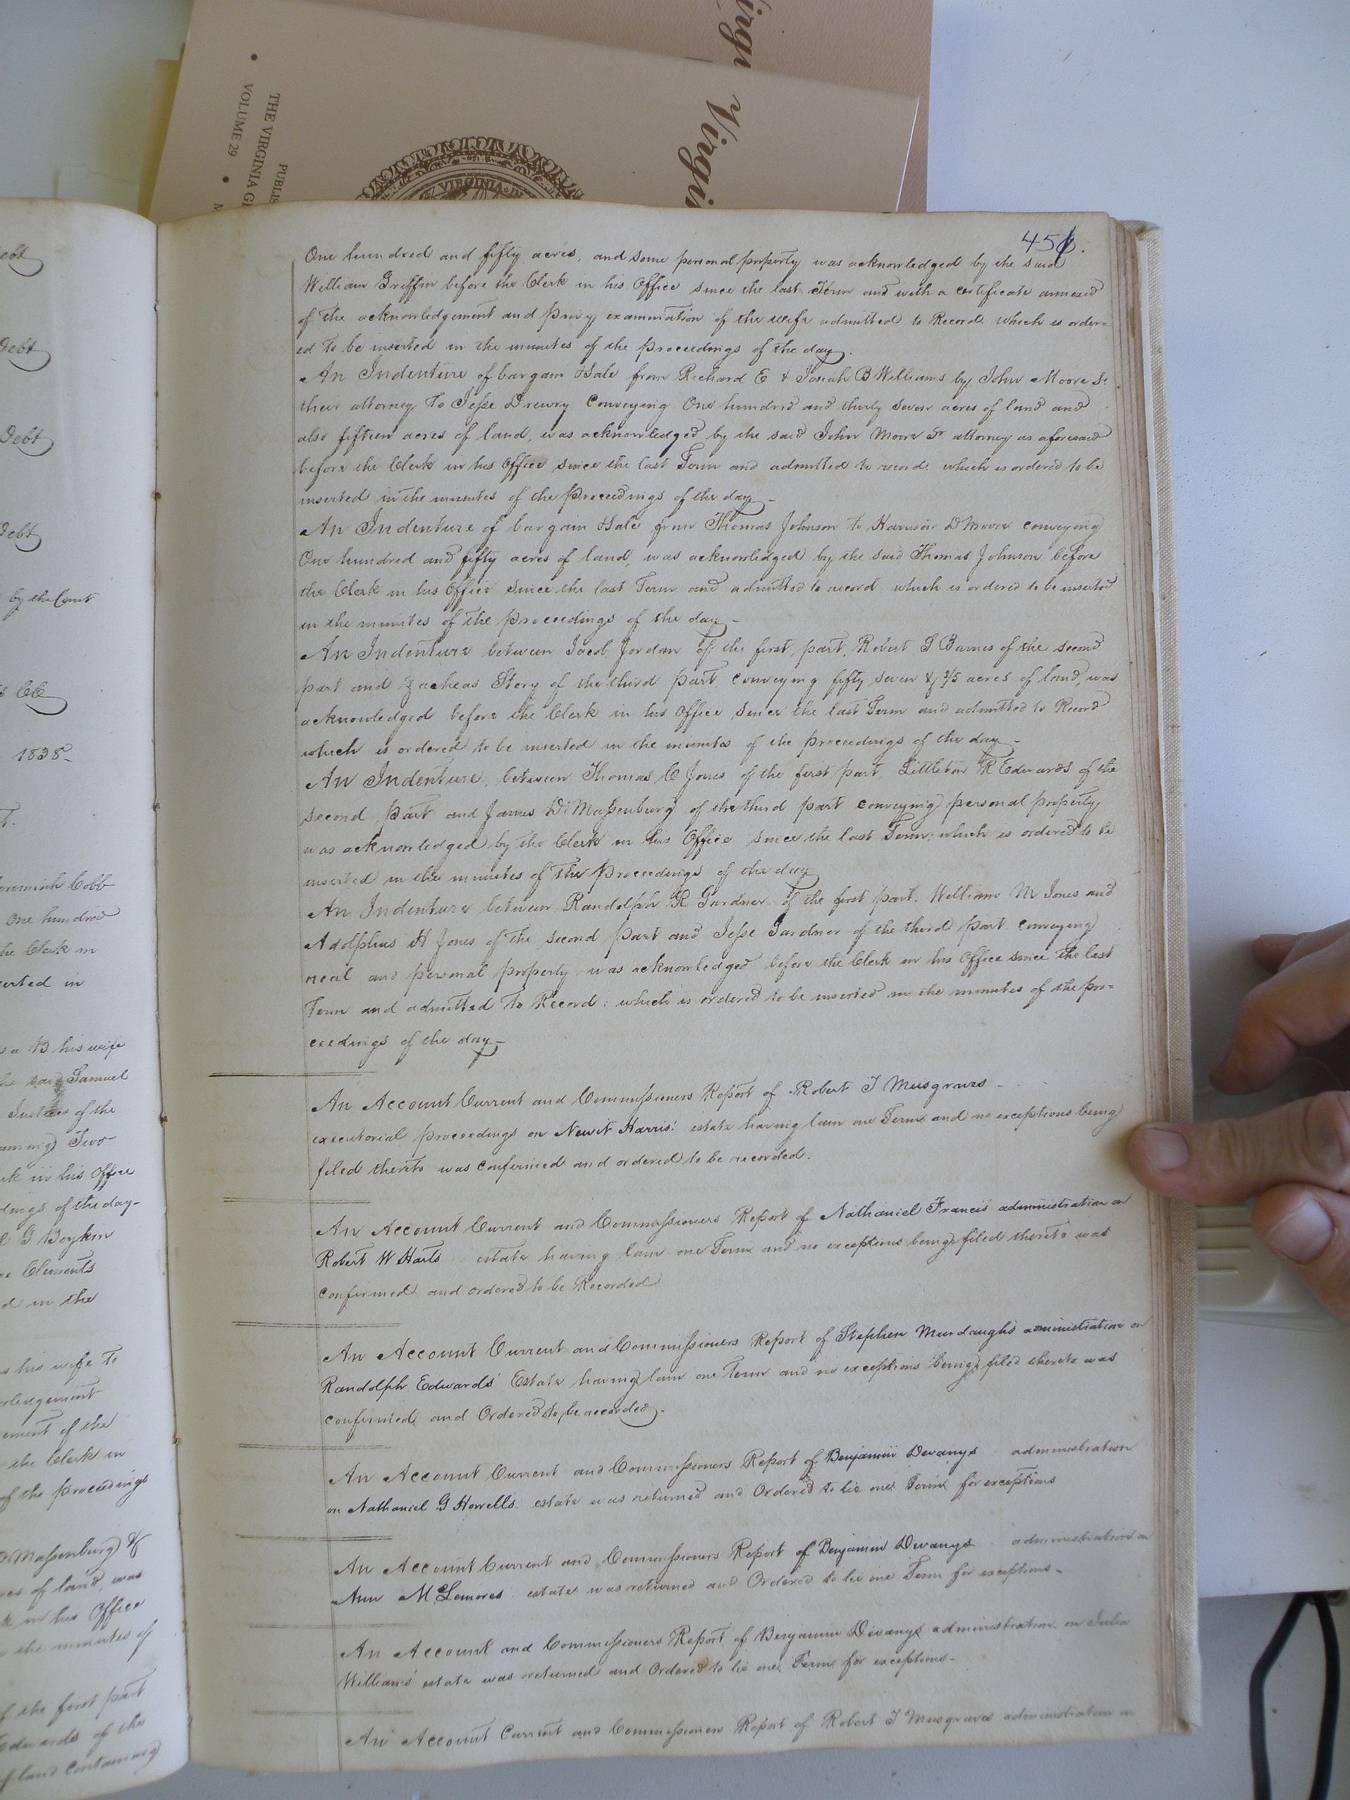 Virgi
Virgin
THE VIRGINIA G
VOLUME 29
PUBLIS
VIRGINIA
Debt
Debt
Debt
Debt
by the Court
1838-
Jeremiah Cobb
One hundred
the Clerk in
erted in
B his wife
the said Samuel
Justices of the
Two
rk in his Office
dings of the day-
G Boykin
Clements
d in the
his wife to
wledgement
ement of the
the Clerk in
of the proceedings
Massenburg &
res of land, was
k in his Office
the minutes of
f the first part
Edwards of the
of land containing
451.
One hundred and fifty acres, and some personal property was acknowledged by the said
William Griffin before the Clerk in his Office since the last Term and with a certificate annexed
of the acknowledgement and privy examination of the wife admitted to Record which is order=
ed to be inserted in the minutes of the proceedings of the day.
An Indenture of bargain & Sale from Richard E & Josiah B Williams by John Moore Sr
their attorney To Jesse Drewry Conveying One hundred and thirty seven acres of land and
also fifteen acres of land, was acknowledged by the said John Moore Sr attorney as aforesaid
before the Clerk in his Office since the last Term and admitted to record. which is ordered to be
inserted in the minutes of the proceedings of the day -
An Indenture of bargain & Sale from Thomas Johnson to Harrison D Moore conveying
One hundred and fifty acres of land, was acknowledged by the said Thomas Johnson before
the Clerk in his Office since the last Term and admitted to record which is ordered to be inserted
in the minutes of the proceedings of the day -
An Indenture between Jacob Jordan of the first part, Robert S Barnes of the second
part and Zacheas Story of the third part, conveying fifty seven & 3/5 acres of land, was
acknowledged before the Clerk in his Office since the last Term and admitted to Record
which is ordered to be inserted in the minutes of the proceedings of the day -
An Indenture, between Thomas C Jones of the first part, Littleton R Edwards of the
second part and James D Massenburg of the third part conveying personal property
was acknowledged by the Clerk in his Office since the last Term, which is ordered to be
inserted in the minutes of the proceedings of the day
An Indenture between Randolph R Gardner of the first part. William M Jones and
Adolphus H Jones of the second part and Jesse Gardner of the third part conveying
real and personal property was acknowledged before the Clerk in his Office since the last
Term and admitted to Record: which is ordered to be inserted in the minutes of the pro=
ceedings of the day -
An Account Current and Commissioners Report of Robert T Musgraves -
executorial proceedings on Newit Harris' estate having lain one Term and no exceptions being
filed thereto was confirmed and ordered to be recorded.
An Account Current and Commissioners Report of Nathaniel Francis' administration on
Robert W Harts estate having lain one Term and no exceptions being filed thereto was
confirmed and ordered to be Recorded
An Account Current and Commissioners Report of Stephen Murdaugh's administration on
Randolph Edwards' Estate having lain one Term and no exceptions being filed thereto was
confirmed and Ordered to be recorded.
An Account Current and Commissioners Report of Benjamin Devanys administration
on Nathaniel G Howells estate was returned and Ordered to lie one Term for exceptions
An Account Current and Commissioners Report of Benjamin Devanys administration on
Ann McLemores estate was returned and Ordered to lie one Term for exceptions -
An Account and Commissioners Report of Benjamin Devanys administration on Julia
Williams' estate was returned and Ordered to lie one Term for exceptions -
An Account Current and Commissioners Report of Robert T Musgraves administration on